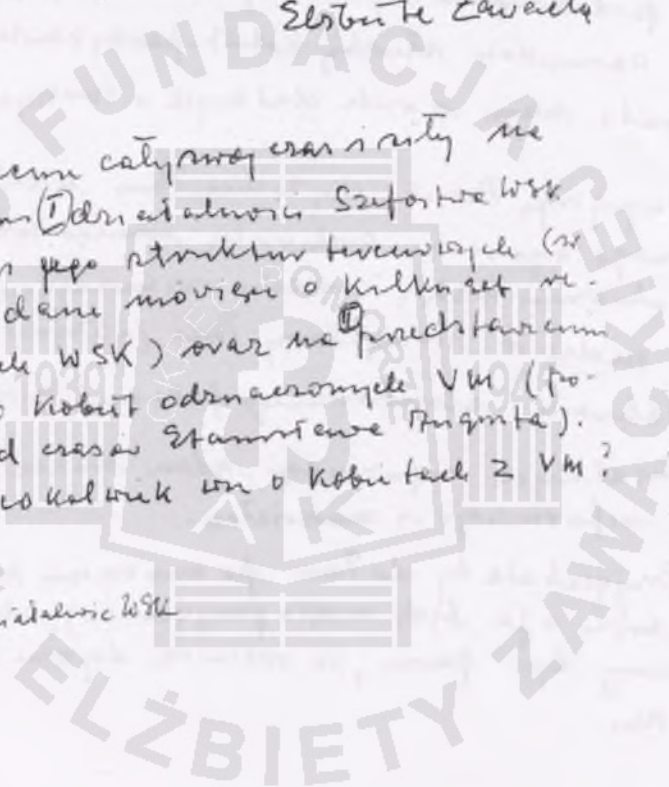 Elżbieta Zawacka
całą swoją czas i siły na
(I) działalności Szefostwa WSK
jego struktur terenowych (w
dane mówiące o kilkuset re-
WSK) oraz na (II) przedstawieniu
kobiet odznaczonych VM (po-
d czasów Stanisława Augusta).
cokolwiek wn o kobietach z VM?
działalność WSK
FUNDACJA
ELŻBIETY ZAWACKIEJ
OKRĘG POMORZE
1939
1945
AK